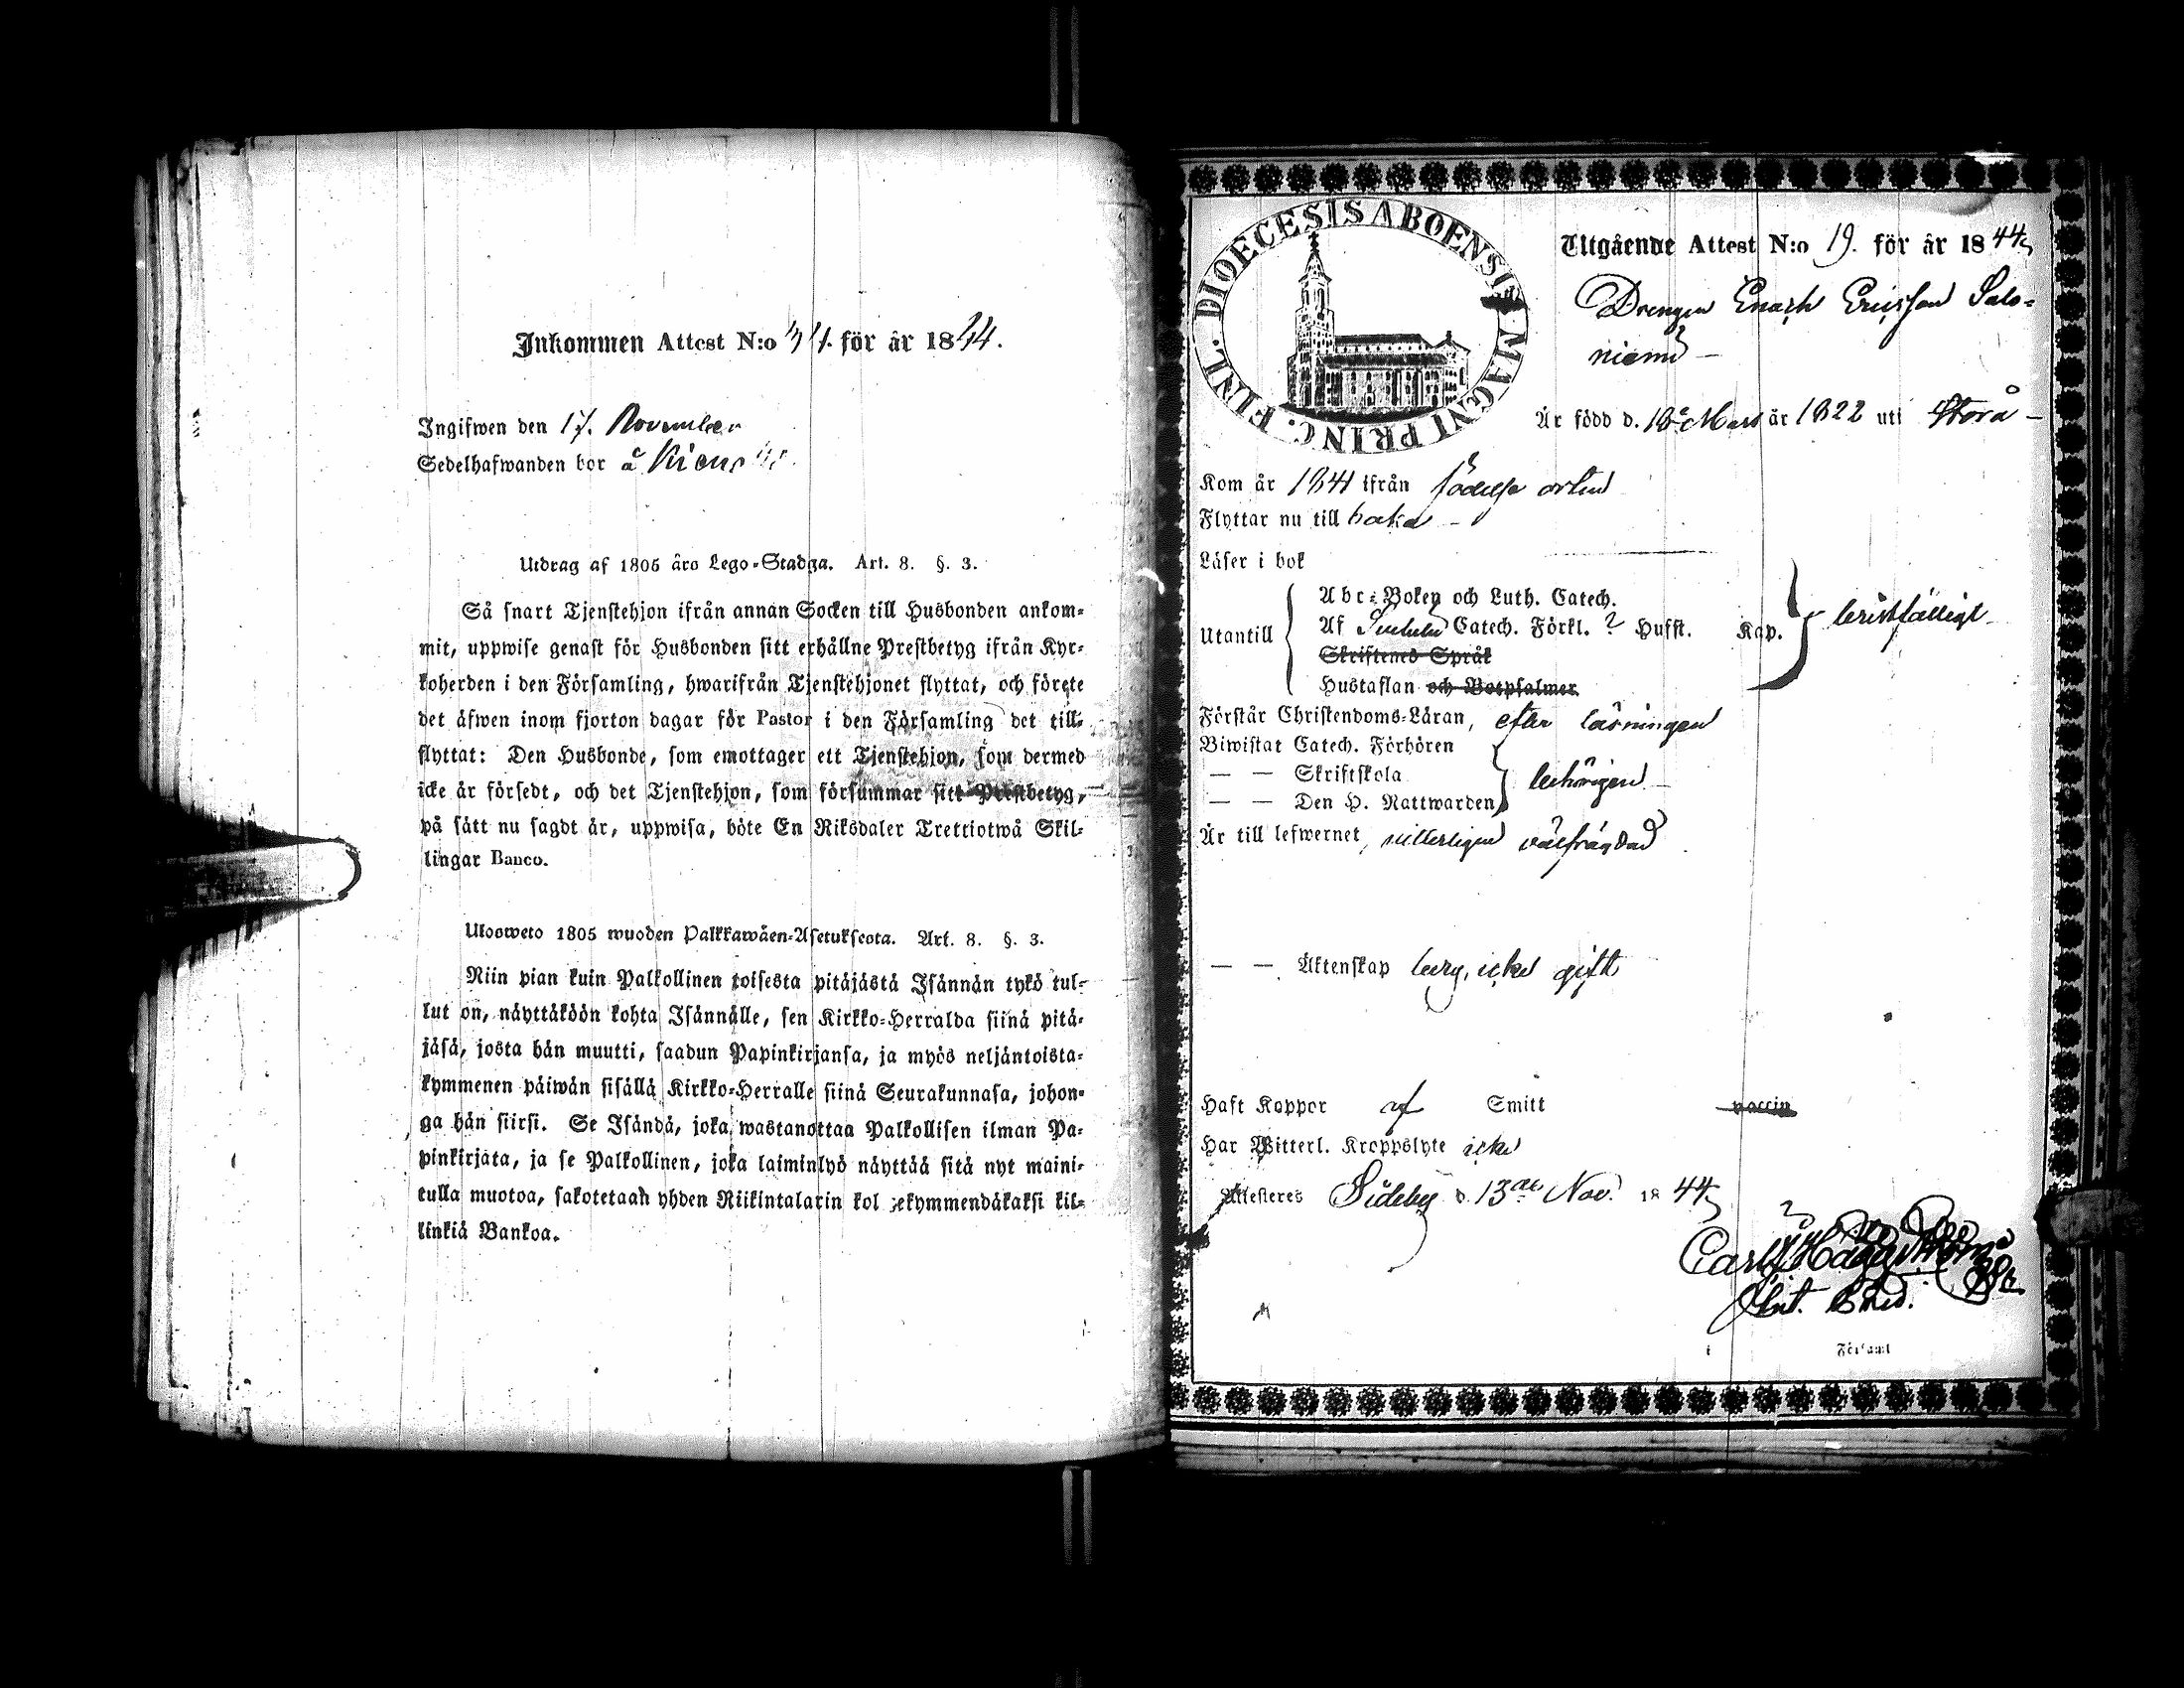 Inkommen Attest N:o för år 1844.
Ingifwen den 17. November
Sedelhafwanden bor å
Utdrag af 1805 års Lego-Stadga. Art. 8. §. 3.
Så snart Tjenstehjon ifrån annan Socken till Husbonden ankom-
mit, uppwise genast för Husbonden sitt erhållne Prestbetyg ifrån Kyr-
koherden i den Församling, hwarifrån Tjenstehjonet flyttat, och förete
det äfwen inom fjorton dagar för Pastor i den Församling det till-
flyttat: Den Husbonde, som emottager ett Tjenstehjon, som dermed
icke är försedt, och det Tjenstehjon, som försummar sitt Prestbetyg,
på sätt nu sagdt är, uppwisa, böte En Riksdaler Trettiotwå Skil-
lingar Banco.
Ulosweto 1805 wuoden Palkkawäen-Asetuksesta. Art. 8. §. 3.
Niin pian kuin Palkollinen toisesta pitäjästä Isännän tykö tul-
lut on, näyttäköön kohta Isännälle, sen Kirkko-Herralda siinä pitä-
jäsä, josta hän muutti, saadun Papinkirjansa, ja myös neljäntoista-
kymmenen päiwän sisällä Kirkko-Herralle siinä Seurakunnasa, johon-
ga hän siirsi. Se Isändä, joka wastanottaa Palkollisen ilman Pa-
pinkirjata, ja se Palkollinen, joka laiminlyö näyttää sitä nyt maini-
tulla muotoa, sakotetaan yhden Riikintalarin kol ekymmendäkaksi kil-
linkiä Bankoa.
DIOECESIS ABOENSIS MAGNI PRINC. FINL.
Utgående Attest N:o 19. för år 1844
Drengen Enach Ericsson Salo-
niemi
Är född d. 18 Mars år 1822 uti Storå
Kom år 1841 ifrån födelse orten
Flyttar nu till baka
Läser i bok
Abc-Boken och Luth. Catech.
Utantill Af Catech. Förkl. ? Hufst. Kap. bristfälligt
Skriftenes Språk
Hustaflan och Botpsalmer
Förstår Christendoms-Läran, efter läsningen
Biwistat Catech. Förhören
— — Skriftskola behörigen
— — Den H. Nattwarden
Är till lefwernet, witterligen välfrägdad
— — Äktenskap ledig, icke gift
Haft Koppor af Smitt vaccin
Har Witterl. Kroppslyte icke
Attesteres Sideby d. 13de Nov. 1844
Carl Häggström
i Församl